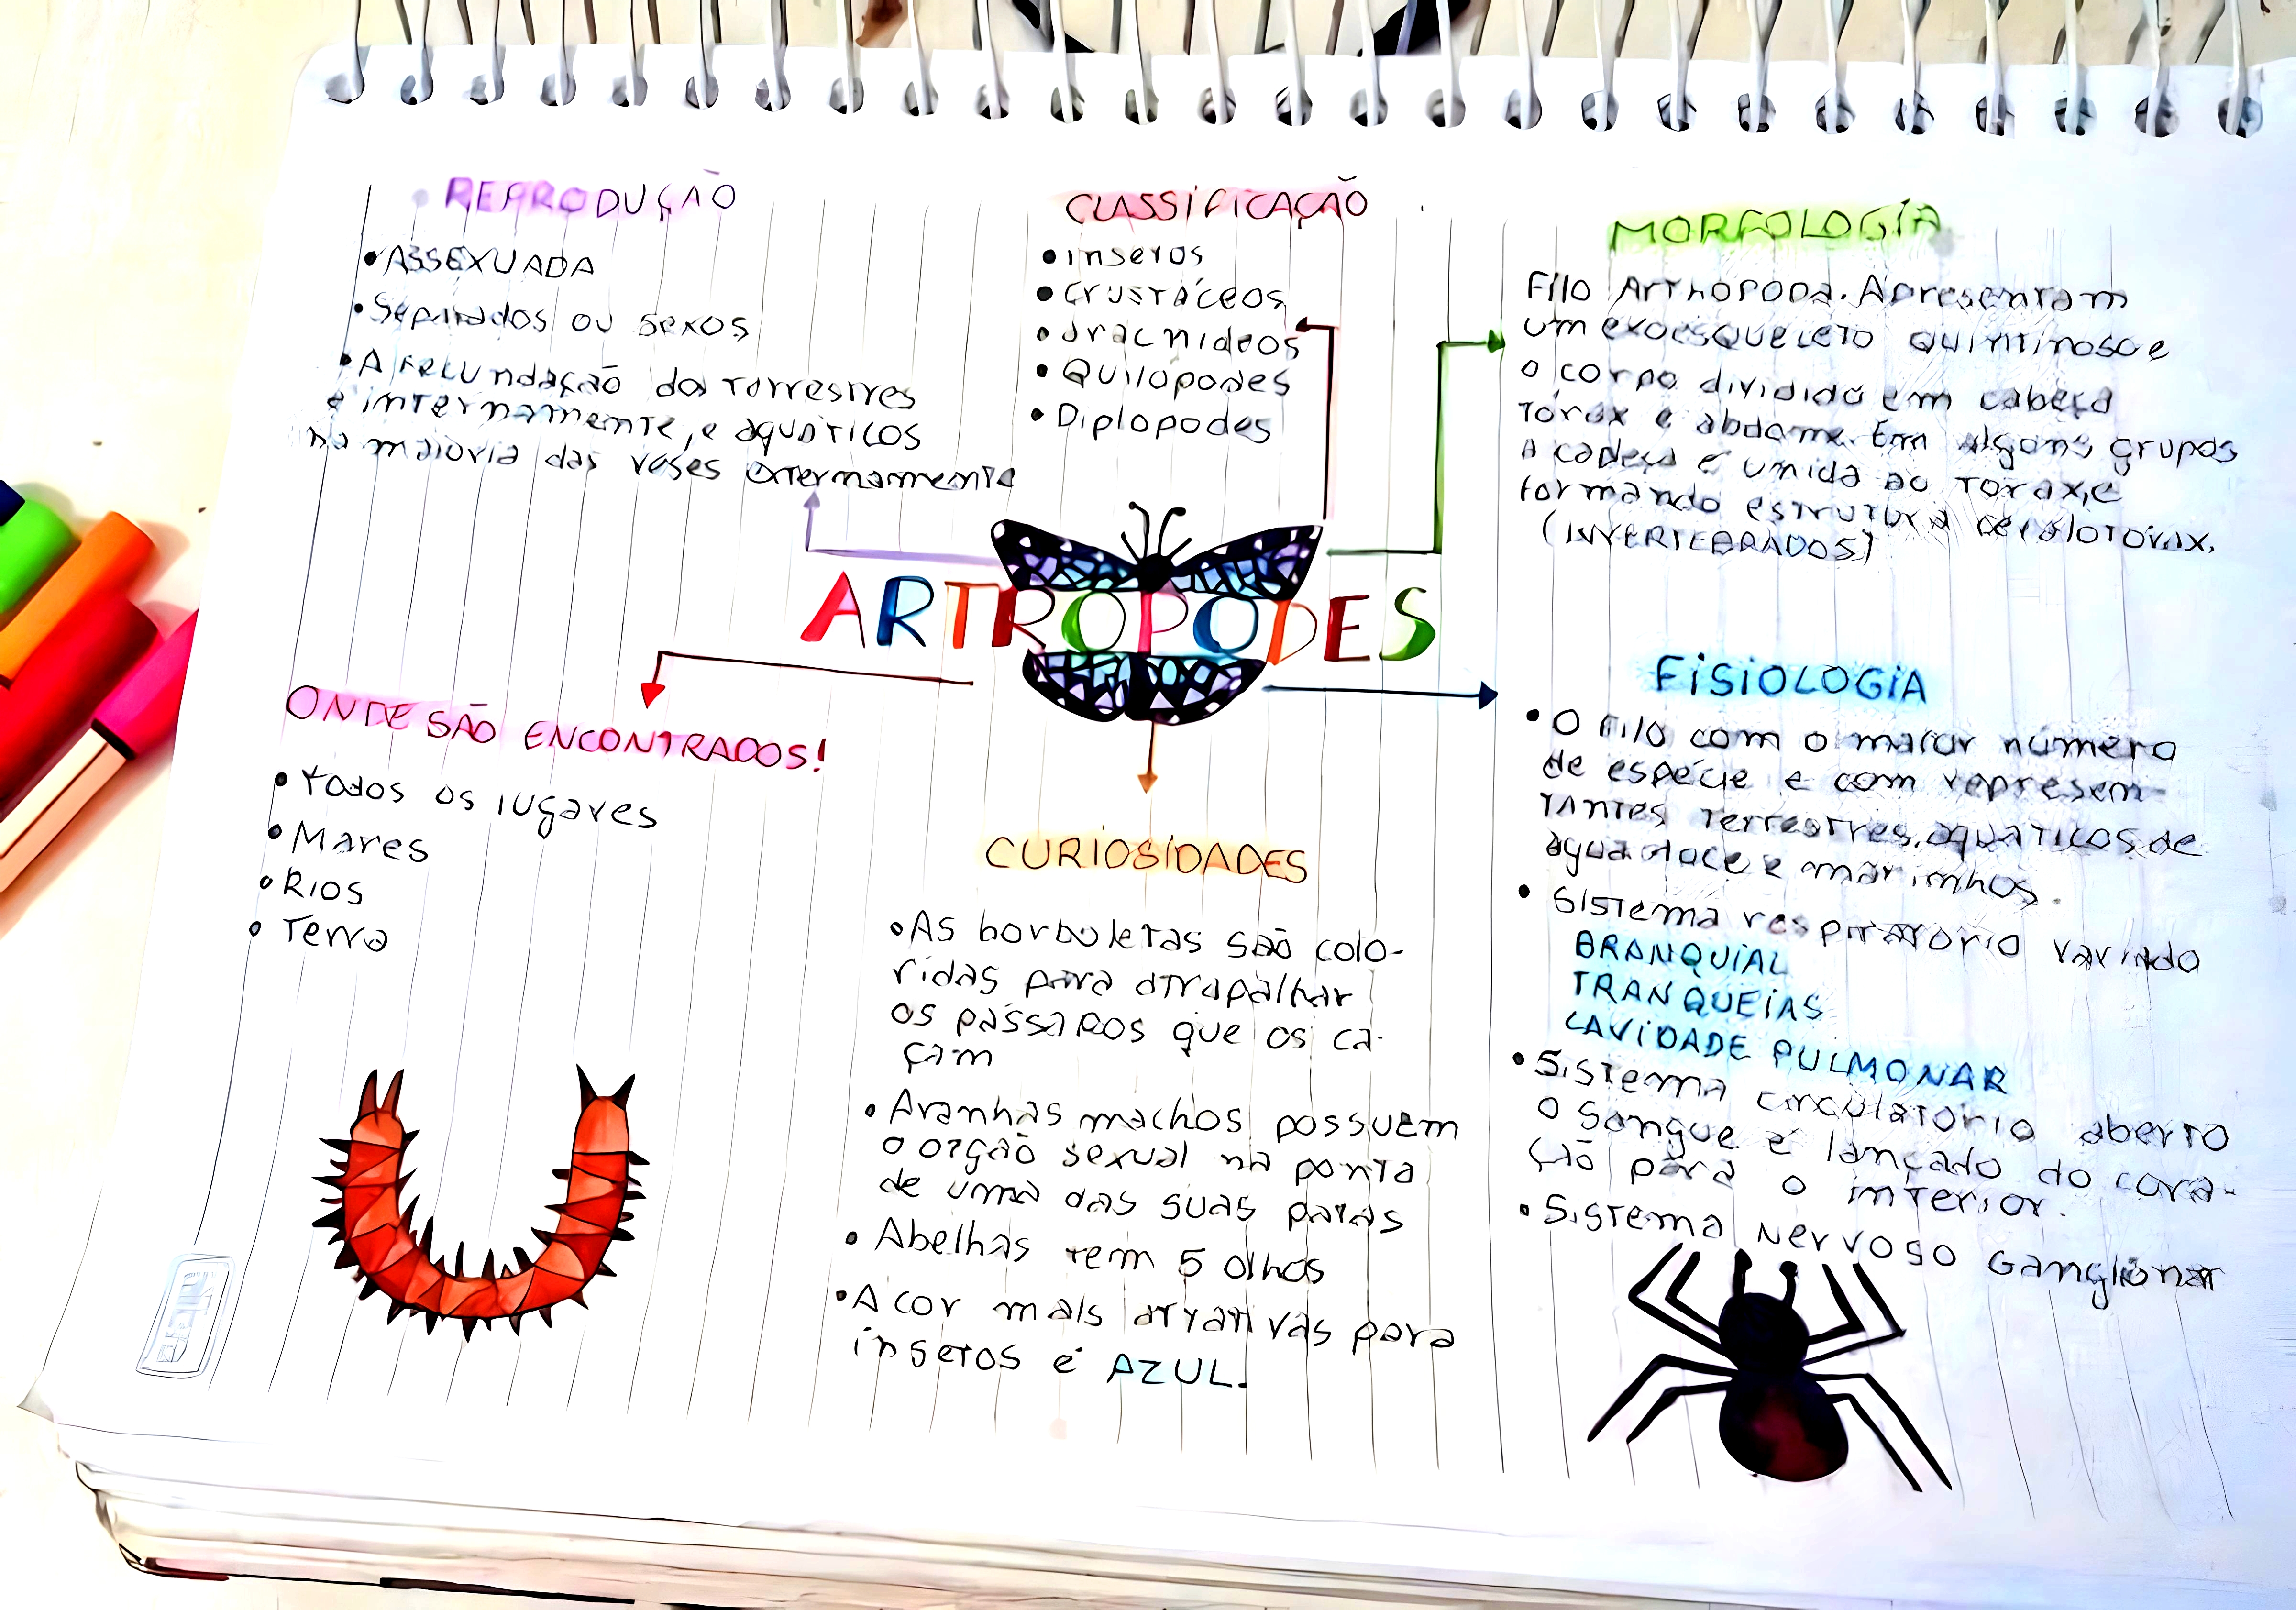 REPRODUÇÃO
• ASSEXUADA
• Separados ou sexos
• A fecundação dos Terrestres
e internamente, e aquáticos
na maioria das veses externamente
CLASSIFICAÇÃO
• insetos
• crustáceos
• aracnideos
• Quilópodes
• Diplopodes
MORFOLOGIA
Filo Arthopoda. Apresentam
um exoesqueleto quintinoso e
o corpo dividido em cabeça
Tórax e abdome. Em alguns grupos
A cabeça é unida ao Torax, e
formando estrutura cefalotórax.
(INVERTEBRADOS)
ARTROPODES
ONDE SÃO ENCONTRADOS!
• Todos os lugares
• Mares
• Rios
• Terra
CURIOSIDADES
• As borboletas são colo-
ridas para atrapalhar
os pássaros que os ca-
çam
• Aranhas machos possuem
o orgão sexual na ponta
de uma das suas patas
• Abelhas tem 5 olhos
• A cor mais atrativas para
insetos é AZUL.
FISIOLOGIA
• O Filo com o maior número
de espécie e com represen-
tantes Terrestres, aquaticos de
água doce e marinhos.
• Sistema respiratorio variado
BRANQUIAL
TRANQUEIAS
CAVIDADE PULMONAR
• Sistema circulatorio aberto
o sangue é lançado do cora-
ção para o interior.
• Sistema Nervoso Ganglionar